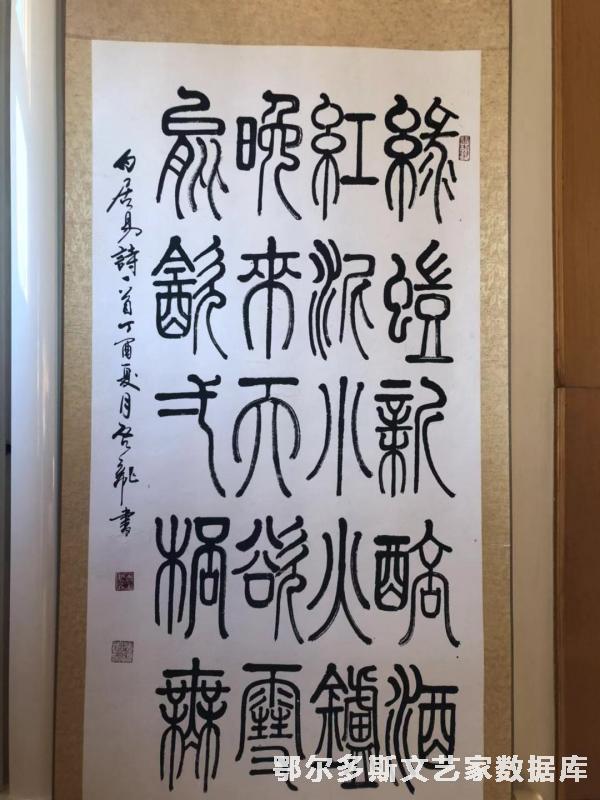 綠螘新醅酒
紅泥小火鑪
晚來天欲雪
能㱃弌桮無
白居易詩一首丁酉夏月書
鄂尔多斯文艺家数据库